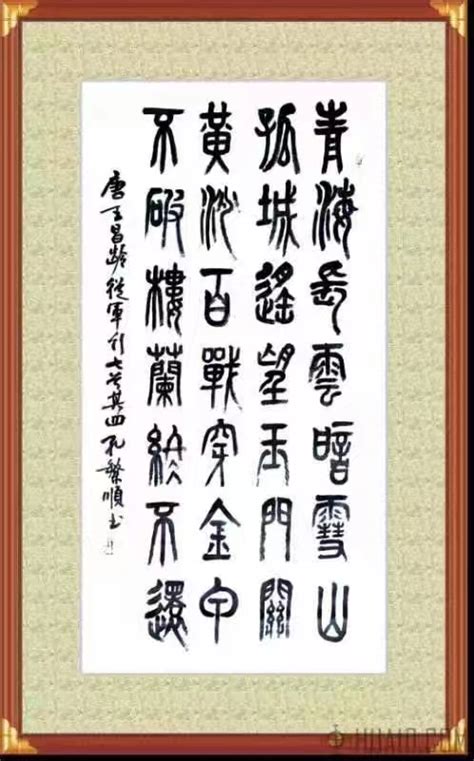 青海長雲暗雪山
孤城遙望玉門關
黃沙百戰穿金甲
不破樓蘭終不還
唐王昌齡從軍行七首其四孔繁順書